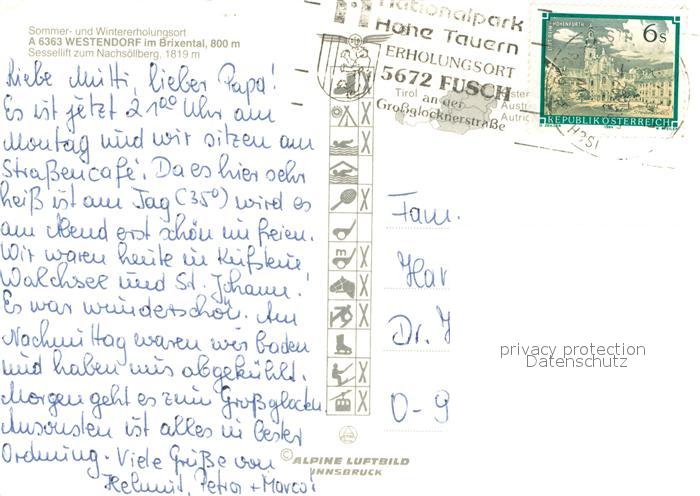 Sommer- und Wintererholungsort
A 6363 WESTENDORF im Brixental, 800 m
Sessellift zum Nachsölberg, 1819 m
Nationalpark
Hohe Tauern
ERHOLUNGSORT
5672 FUSCH
an der
Großglocknerstraße
Tirol
Austr
Autric
6 S
REPUBLIK ÖSTERREICH
Liebe Mutti, lieber Papa!
Es ist jetzt 21 00 Uhr am
Montag und wir sitzen am
Straßencafé. Da es hier sehr
heiß ist am Tag (35°) wird es
am Abend erst schön im freien.
Wir waren heute in Kufstein,
Walchsee und St. Johann!
Es war wunderschön. Am
Nachmittag waren wir baden
und haben uns abgekühlt.
Morgen geht es zum Großglockn.
Ansonsten ist alles in bester
Ordnung. Viele Grüße von
Helmut, Petra + Marco!
Fam.
Har
Dr. J
O-9
privacy protection
Datenschutz
© ALPINE LUFTBILD
INNSBRUCK